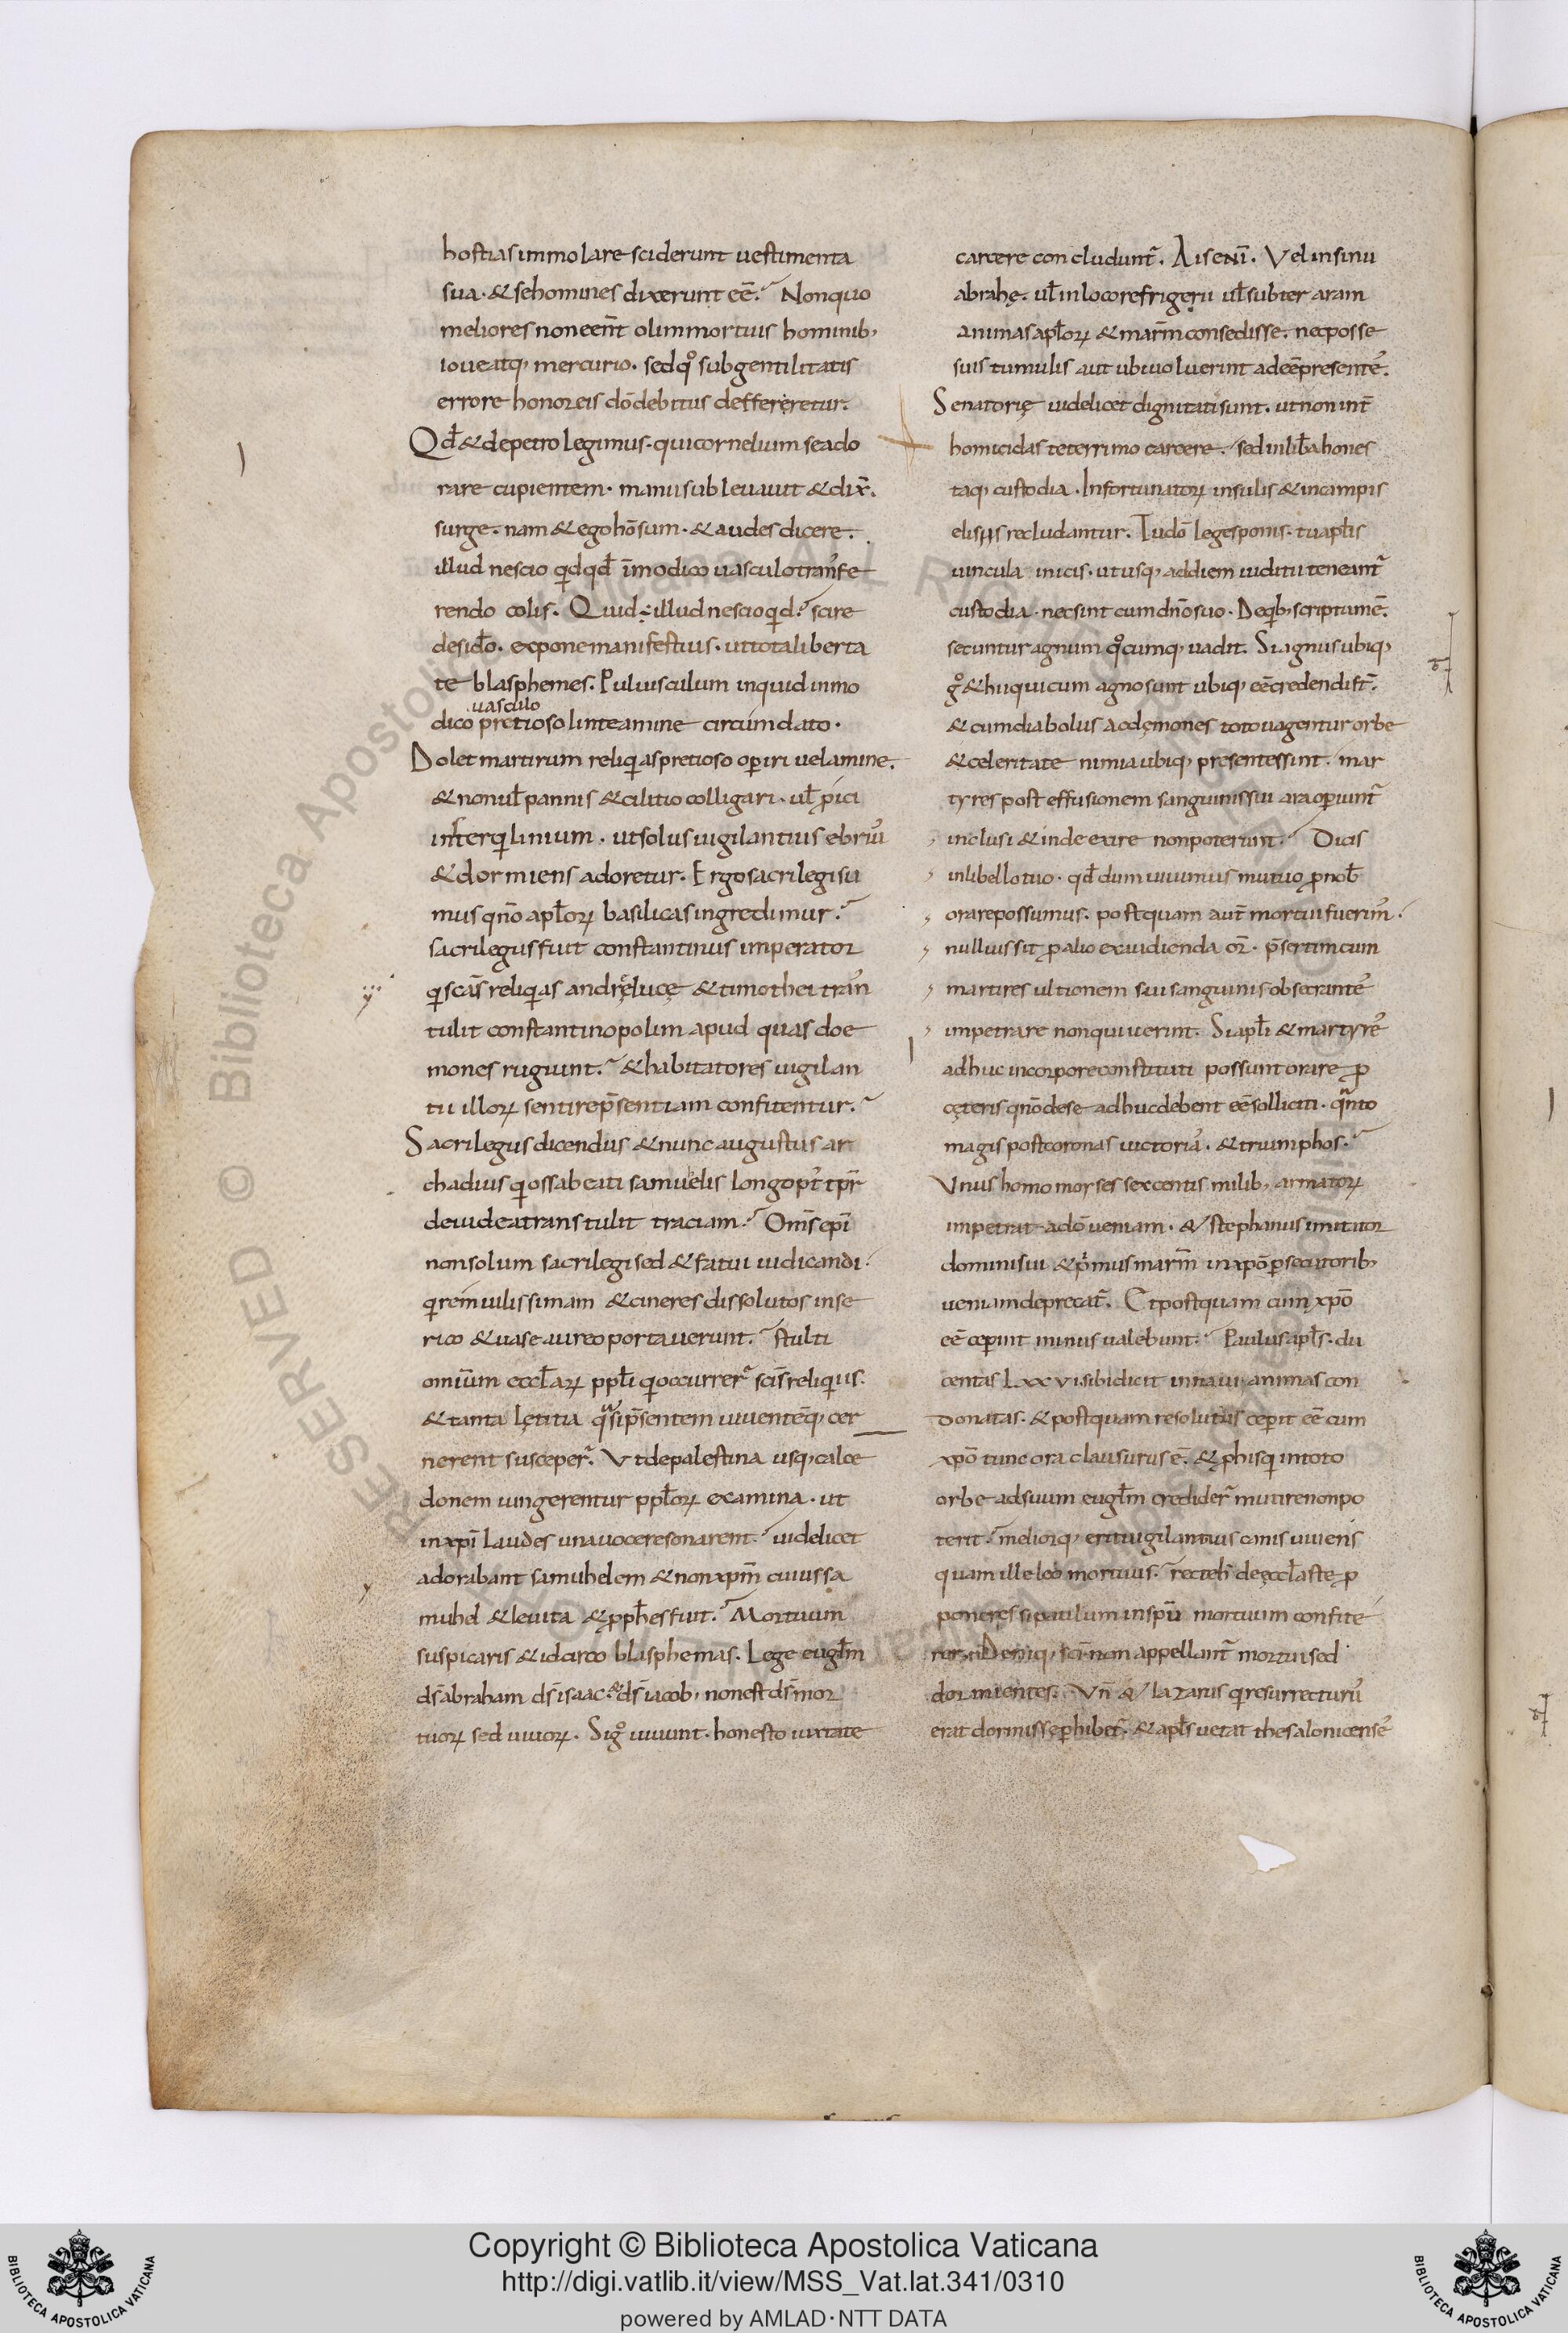 hostias immolare sciderunt uestimenta
sua · & se homines dixerunt eē. Non quo
meliores non eēnt olim mortuis hominib;
ioue atq; mercurio · sed qͦ sub gentilitatis
errore honor eis dō debitus defferęretur.
Qd̄ & de petro legimus · qui cornelium se ado
rare cupientem · manu subleuauit & dix̄.
surge · nam & ego hō sum · & audes dicere.
illud nescio qid qd̄ īmodico uasculo tranſfe
rendo colis. Quid ÷ illud nescio qid. scire
desid̄o · expone manifestius · ut tota liberta
te blasphemes. Puluisculum inquid inmo
uasculo
dico pretioso linteamine circumdato ·
Dolet martirum reliqias pretioso operiri uelamine.
& non ul̄ pannis & cilitio colligari · ul̄ proici
in sterqilinium · ut solus uigilantius ebriuˀ
& dormiens adoretur. Ergo sacrilegi su
mus qn̄o apl̄orꝝ basilicas ingredimur.
sacrilegus fuit constantinus imperator
qi scās reliqias andręę lucę & timothei tranˀ
tulit constantinopolim apud quas doe
mones rugiunt. & habitatores uigilan
tii illorꝝ sentire p̄sentiam confitentur.
Sacrilegus dicendus & nunc augustus ar
chadius qi ossa beati samuelis longo pˀt tpr̄
de iudea transtulit traciam. Om̄s epī
non solum sacrilegi sed & fatui iudicandi.
qi rem uilissimam & cineres dissolutos in se
rico & uase aureo portauerunt. stulti
omiūm eccl̄arꝝ ppl̄i qi occurrer̄ scīs reliqiis.
& tanta lętitia qᵃsi p̄sentem uiuentēq; cer
nerent susceper̄. Ut de palestina usq; calce
donem iungerentur ppl̄orꝝ examina · ut
in xpī laudes una uoce resonarent. uidelicet
adorabant samuhelem & non xpm̄ cuius sa
muhel & leuita & ꝓph̄es fuit. Mortuum
suspicaris & idcirco blasphemas. Lege eugl̄m
ds̄ abraham ds̄ isaac & ds̄ iacob, non est ds̄ mor
tuorꝝ sed uiuorꝝ. Si gͦ uiuunt · honesto iuxta te
carcere concluduntr̄. Ais eni̅. Vel in sinu
abrahę. ul̄ in loco refrigęrii ul̄ subter aram
animas apl̄orꝝ & marm̄ consedisse. nec posse
suis tumulis aut ubi uoluerint adeē presenteˀ.
Senatorię uidelicet dignitati sunt. ut non int̄
homicidas teterrimo carcere. sed in lib̄a hones
taq; custodia. Infortunatorꝝ insulis & in campis
elisiis recludantur. Tu dō leges ponis. tu apl̄is
uincula inicis · ut usq; ad diem iuditii teneantr̄
custodia · nec sint cum dn̄o suo · De qib; scriptum ē.
secuntur agnum qͦcumq; uadit. Si agnus ubiq;
gͦ & hii qui cum agno sunt ubiq; eē credendi st̄.
& cum diabolus ac dęmones toto uagentur orbe
& celeritate nimia ubiq; presentes sint. mar
tyres post effusionem sanguinis sui ara operiuntr̄
inclusi & inde exire non poterunt. Dicis
in libello tuo · qd̄ dum uiuimus mutuo ꝓ nob̄
orare possumus. postquam aut̄ mortui fuerimˀ.
nullius sit ꝓ alio exaudienda or̄ · p̄sertim cum
martires ultionem sui sanguinis obsecranteˀ
impetrare non quiuerint. Si apl̄i & martyreˀ
adhuc in corpore constituti possunt orare ꝓ
cęteris qn̄o de se adhuc debent eē solliciti · qᵃnto
magis post coronas uictoriaˀ. & triumphos.
Vnus homo moyses sexcentis milib; armatorꝝ
impetrat a dō ueniam · & stephanus imitator
domini sui & pⁱmus marm̄ in xpō ꝑsecutorib;
ueniam deprecatr̄. Et postquam cum xpō
eē ceperint minus ualebunt. Paulus apl̄s · du
centas Lxx vi · sibi dicit in naui animas con
donatas. & postquam resolutus ceperit eē cum
xpō tunc ora clausurus ē. & ꝓ his qi in toto
orbe ad suum eugl̄m credider̄ mutire non po
terit. meliorq; erit uigilantius canis uiuens
quam ille leo mortuus. recte h̄ de ęccl̄aste ꝓ
ponerẹs si paulum in spū mortuum confite
rer. Deniq; scī · non appellantr̄ mortui sed
dormientes. Vn̄ & lazarus qi resurrecturuˀ
erat dormisse ꝑhibetr̄. & apl̄s uetat thesalonicenseˀ